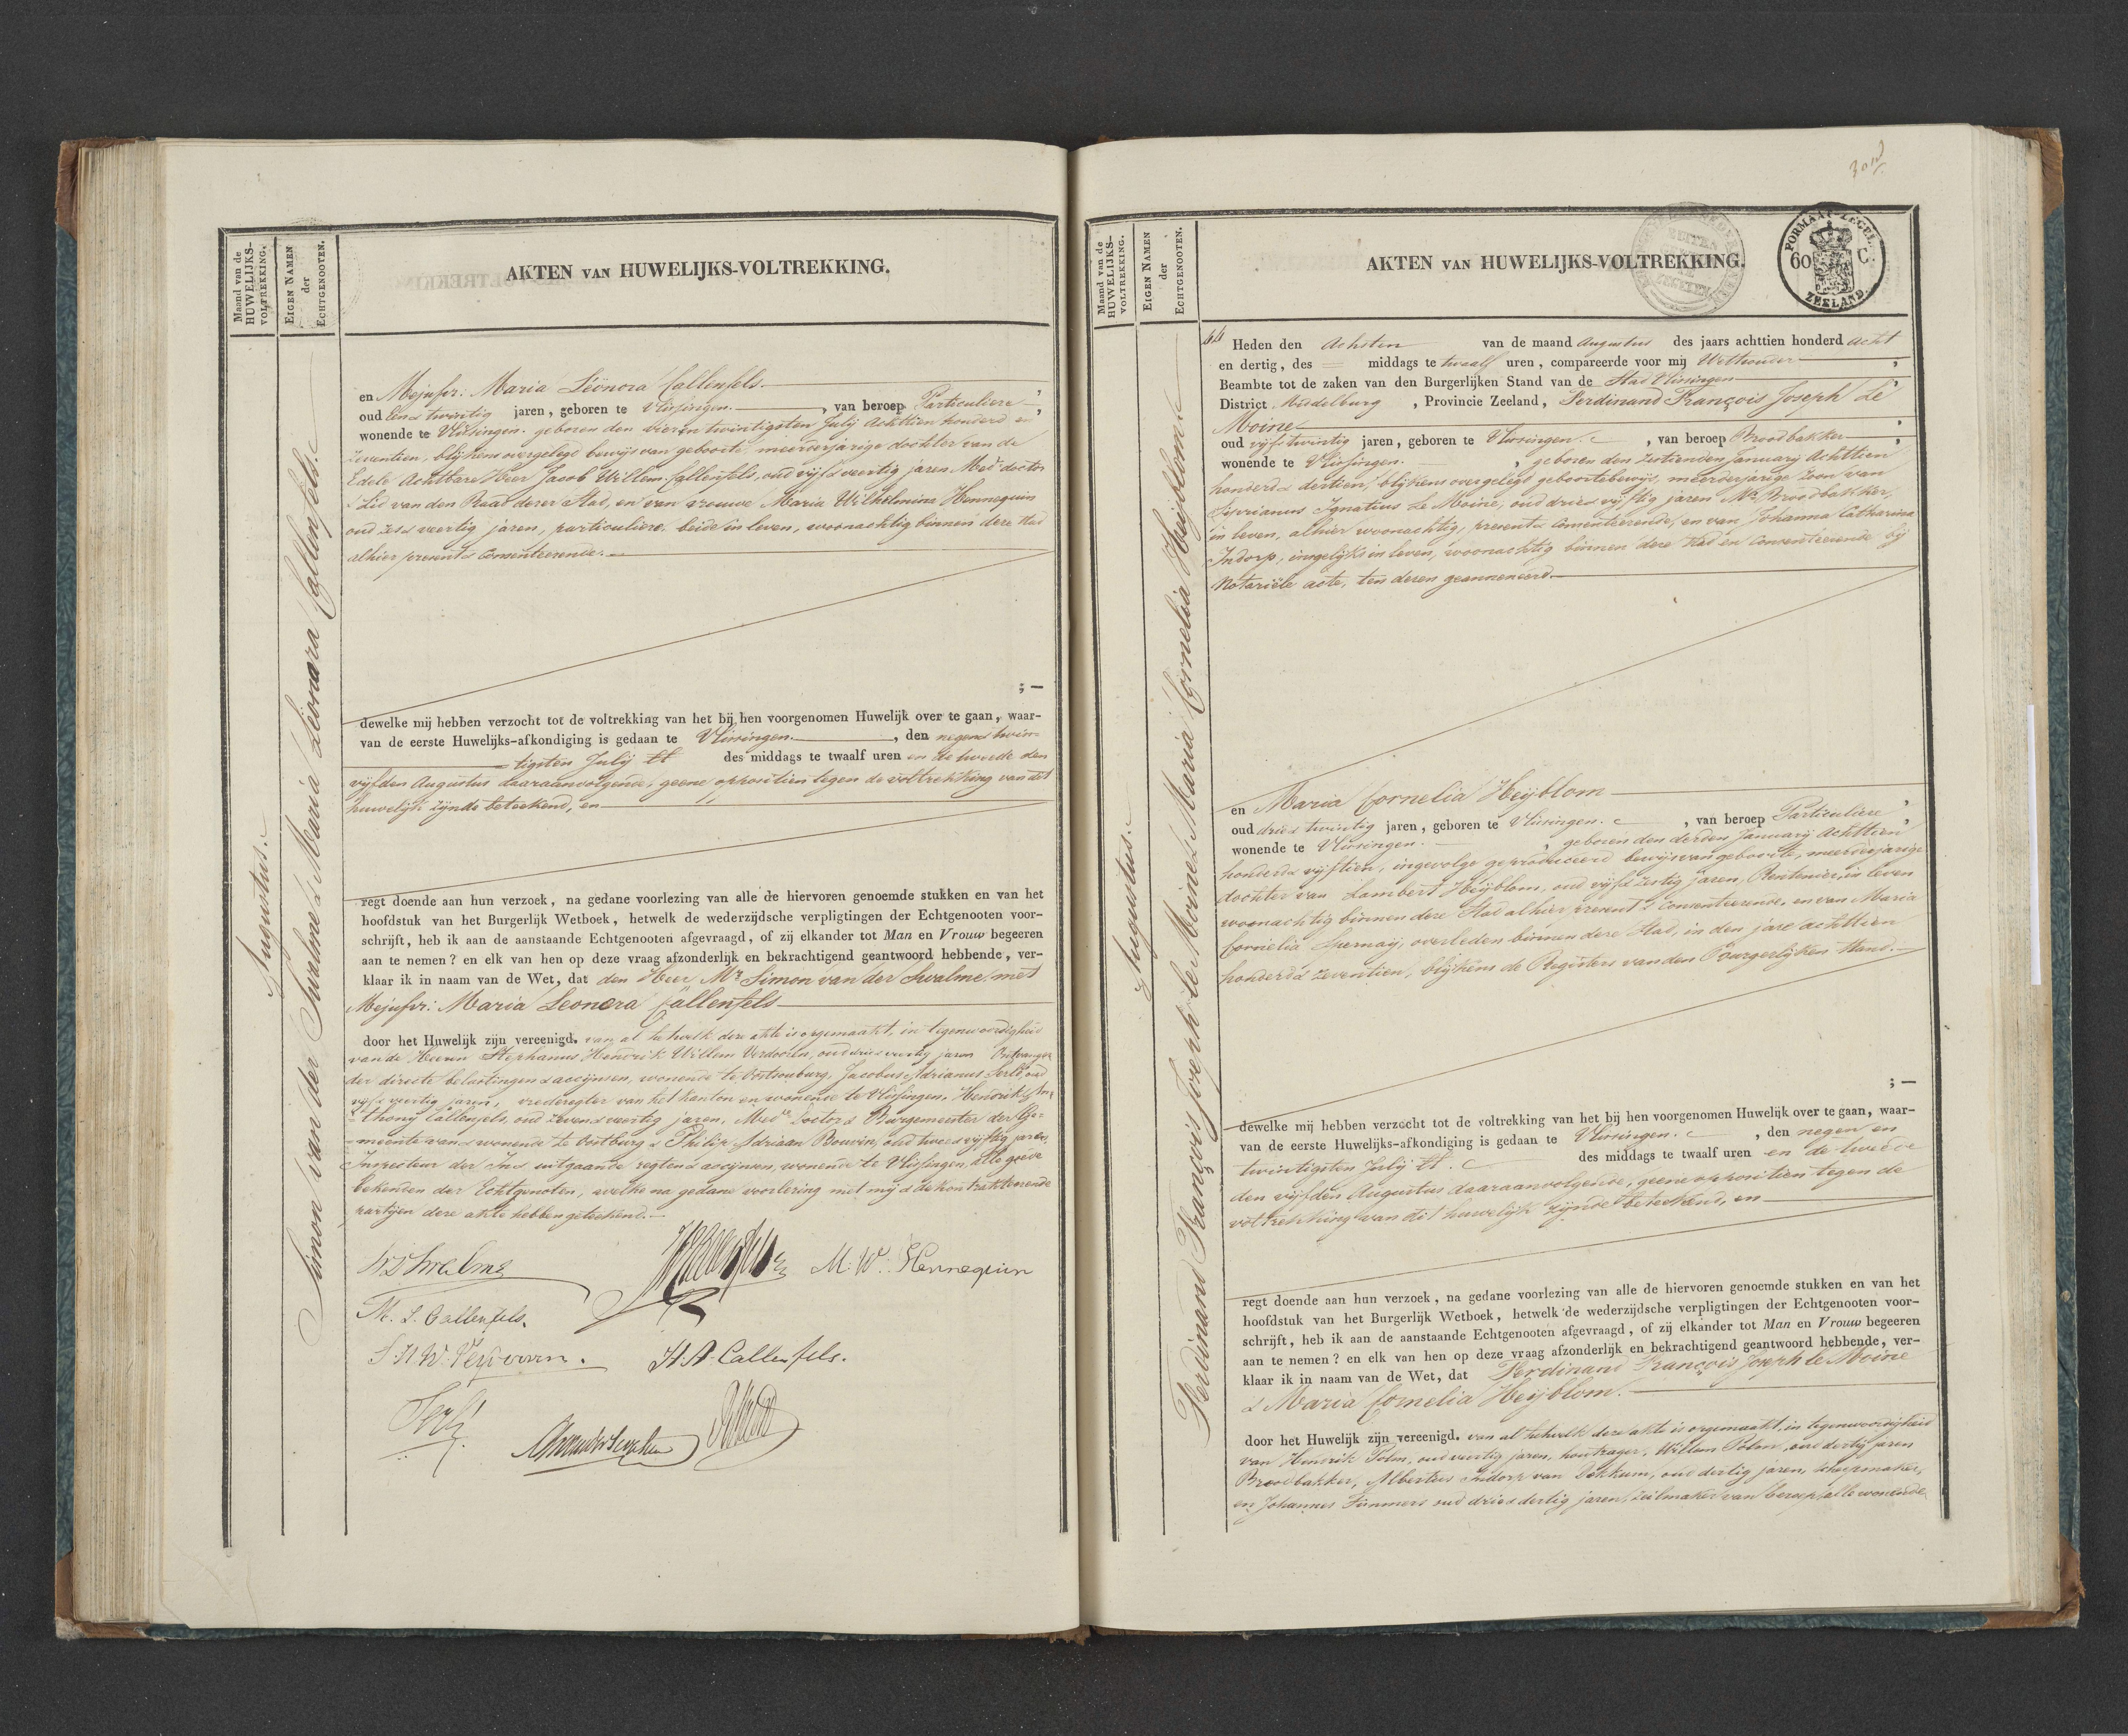 Maand van de
HUWELIJKS-
VOLTREKKING.
EIGEN NAMEN
der
ECHTGENOOTEN.
AKTEN VAN HUWELIJKS-VOLTREKKING.
Augustus.
Simon van der Swalme & Maria Leonora Callenfels.
en Mejufvr. Maria Léönora Callenfels.
oud Een & twintig jaren, geboren te Vlissingen. , van beroep Particuliere ,
wonende te Vlissingen. geboren den vier en twintigsten Julij Achttien honderd en
zeventien, blijkens overgelegd bewijs van geboorte, meerderjarige dochter van de
Edele Achtbare Heer Jacob Willem Callenfels, oud vijf & veertig jaren Med. doctor
& Lid van den Raad dezer Stad, en van vrouwe Maria Wilhelmina Hennequin
oud zes & veertig jaren, particuliere, beide in leven, woonachtig binnen deze Stad
alhier present & Consenteerende.
; —
dewelke mij hebben verzocht tot de voltrekking van het bij hen voorgenomen Huwelijk over te gaan, waar-
van de eerste Huwelijks-afkondiging is gedaan te Vlissingen. , den negen & twin-
tigsten Julij ll des middags te twaalf uren en de tweede den
vijfden Augustus daaraanvolgende, geene oppositien tegen de voltrekking van dit
huwelijk zijnde beteekend, en
regt doende aan hun verzoek, na gedane voorlezing van alle de hiervoren genoemde stukken en van het
hoofdstuk van het Burgerlijk Wetboek, hetwelk de wederzijdsche verpligtingen der Echtgenooten voor-
schrijft, heb ik aan de aanstaande Echtgenooten afgevraagd, of zij elkander tot Man en Vrouw begeeren
aan te nemen? en elk van hen op deze vraag afzonderlijk en bekrachtigend geantwoord hebbende, ver-
klaar ik in naam van de Wet, dat den Heer Mr Simon van der Swalme, met
Mejufvr: Maria Leonora Callenfels
door het Huwelijk zijn vereenigd. van al hetwelk deze akte is opgemaakt, in tegenwoordigheid
van de Heeren Stephanus Hendrik Willem Verdooren, oud drie & veertig jaren Ontvanger
der directe belastingen & accijnsen, wonende te Oostsouburg, Jacobus Adrianus Serlé, oud
vijf & veertig jaren, vrederegter van het kanton en wonende te Vlissingen, Hendrik An-
thonij Callenfels, oud zeven & veertig jaren, Med. Doctor & Burgemeester der Ge-
meente van & wonende te Oostburg & Philip Adriaan Bouvin, oud twee & vijftig jaren,
Inspecteur der In & uitgaande regten & accijnsen, wonende te Vlissingen, alle goede
bekenden der Echtgenoten, welke na gedane voorlezing met mij & de kontrakteerende
partijen deze akte hebben geteekend.
M. W. Hennequin
M. L. Callenfels.
H. A. Callenfels.
Maand van de
HUWELIJKS-
VOLTREKKING.
EIGEN NAMEN
der
ECHTGENOOTEN.
AKTEN VAN HUWELIJKS-VOLTREKKING.
FORMAAT ZEGEL.
60 C.
ZEELAND.
Augustus.
Ferdinand François Joseph le Moine & Maria Cornelia Heijblom
44 Heden den Achsten van de maand Augustus des jaars achttien honderd acht
en dertig, des middags te twaalf uren, compareerde voor mij Wethouder ,
Beambte tot de zaken van den Burgerlijken Stand van de Stad Vlissingen
District Middelburg , Provincie Zeeland, Ferdinand François Joseph Le
Moine
oud vijf & twintig jaren, geboren te Vlissingen. , van beroep Broodbakker ,
wonende te Vlissingen. , geboren den zestienden Januarij Achttien
honderd & dertien, blijkens overgelegd geboortebewijs, meerderjarige zoon van
Siprianus Ignatius Le Moine, oud drie & vijftig jaren Mr Broodbakker,
in leven, alhier woonachtig, present & Consenteerende, en van Johanna Catharina
Indorp, insgelijks in leven, woonachtig binnen deze Stad en Consenteerende bij
Notariële acte, ten dezen geannexeerd.
en Maria Cornelia Heijblom
oud drie & twintig jaren, geboren te Vlissingen. , van beroep Particuliere ,
wonende te Vlissingen. , geboren den derden Januarij Achttien
honderd & vijftien, ingevolge geproduceerd bewijs van geboorte, meerderjarige
dochter van Lambert Heijblom, oud vijf & zestig jaren, Rentenier, in leven
woonachtig binnen deze Stad alhier present & Consenteerende, en van Maria
Cornelia overleden binnen deze Stad, in den jare achttien
honderd & zeventien, blijkens de Registers van den Burgerlijken Stand.
; —
dewelke mij hebben verzocht tot de voltrekking van het bij hen voorgenomen Huwelijk over te gaan, waar-
van de eerste Huwelijks-afkondiging is gedaan te Vlissingen. , den negen en
twintigsten Julij ll. des middags te twaalf uren en de tweede
den vijfden Augustus daaraanvolgende, geene oppositien tegen de
voltrekking van dit huwelijk zijnde beteekend, en
regt doende aan hun verzoek, na gedane voorlezing van alle de hiervoren genoemde stukken en van het
hoofdstuk van het Burgerlijk Wetboek, hetwelk de wederzijdsche verpligtingen der Echtgenooten voor-
schrijft, heb ik aan de aanstaande Echtgenooten afgevraagd, of zij elkander tot Man en Vrouw begeeren
aan te nemen? en elk van hen op deze vraag afzonderlijk en bekrachtigend geantwoord hebbende, ver-
klaar ik in naam van de Wet, dat Ferdinand François Joseph le Moine
& Maria Cornelia Heijblom.
door het Huwelijk zijn vereenigd. van al hetwelk deze akte is opgemaakt, in tegenwoordigheid
van Hendrik Polm, oud veertig jaren, houtzager, Willem Polm, oud dertig jaren
Broodbakker, Albertus Indorp van Dokkum, oud dertig jaren, scheepmaker,
en Johannes Timmers oud drie & dertig jaren, zeilmaker van beroep, alle wonende